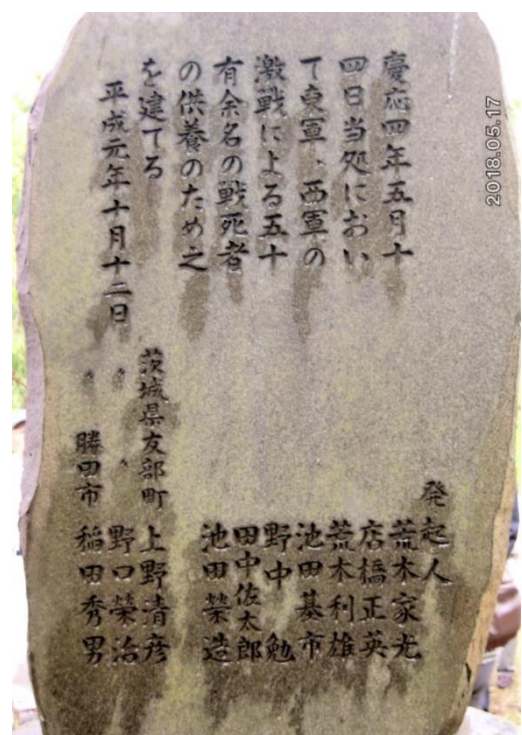 慶応四年五月十
四日当処におい
て東軍、西軍の
激戦による五十
有余名の戦死者
の供養のため之
を建てる
平成元年十月十二日
発起人
荒木家光
店橋正英
荒木利雄
池田基市
野中勉
田中佐太郎
池田榮造
茨城県友部町 上野清彦
〃 〃 野口榮治
〃 勝田市 稲田秀男
2018.05.17